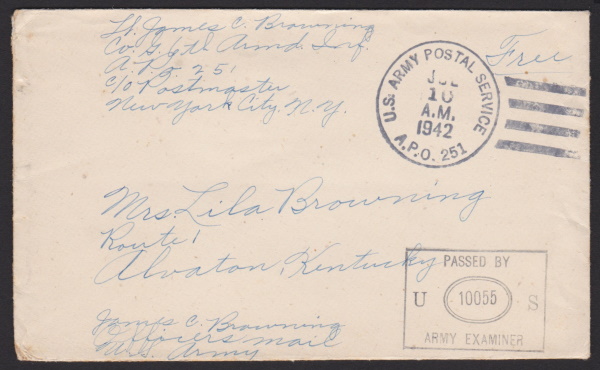 Lt. James C. Browning
Co. G. 6th Armd. Inf.
A.P.O. 251
c/o Postmaster
New York City, N.Y.
Free
U.S. ARMY POSTAL SERVICE
JUL
10
A.M.
1942
A.P.O. 251
Mrs. Lila Browning
Route 1
Alvaton, Kentucky
PASSED BY
U 10055 S
ARMY EXAMINER
James C. Browning
Officers mail
U.S. Army